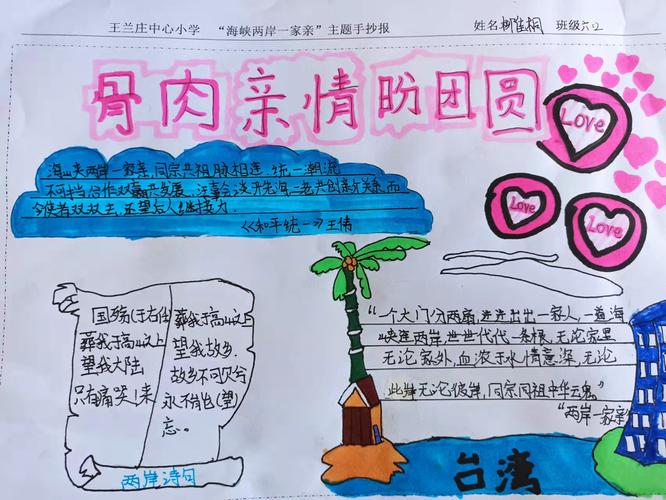 王兰庄中心小学 “海峡两岸一家亲”主题手抄报 姓名 班级六2
骨肉亲情盼团圆
Love
Love
Love
海峡两岸一家亲,同宗共祖脉相连,统一潮流
不可挡合作双赢共发展,汪辜会谈开先河二老共创新关系,而
今使者双双去,还望后人继接力.
《和平统一》王倩
国殇(于右任)
葬我于高山之上
望我大陆
只有痛哭!来
葬我于高山之上
望我故乡.
故乡不可见兮
永不能忘(望)
忘。
两岸诗句
“一个大门分两扇,进进出出一家人,一道海
峡连两岸世世代代一条根,无论家里
无论家外,血浓于水情意深,无论
此岸无论彼岸,同宗同祖中华云鬼”
“两岸一家亲
台湾